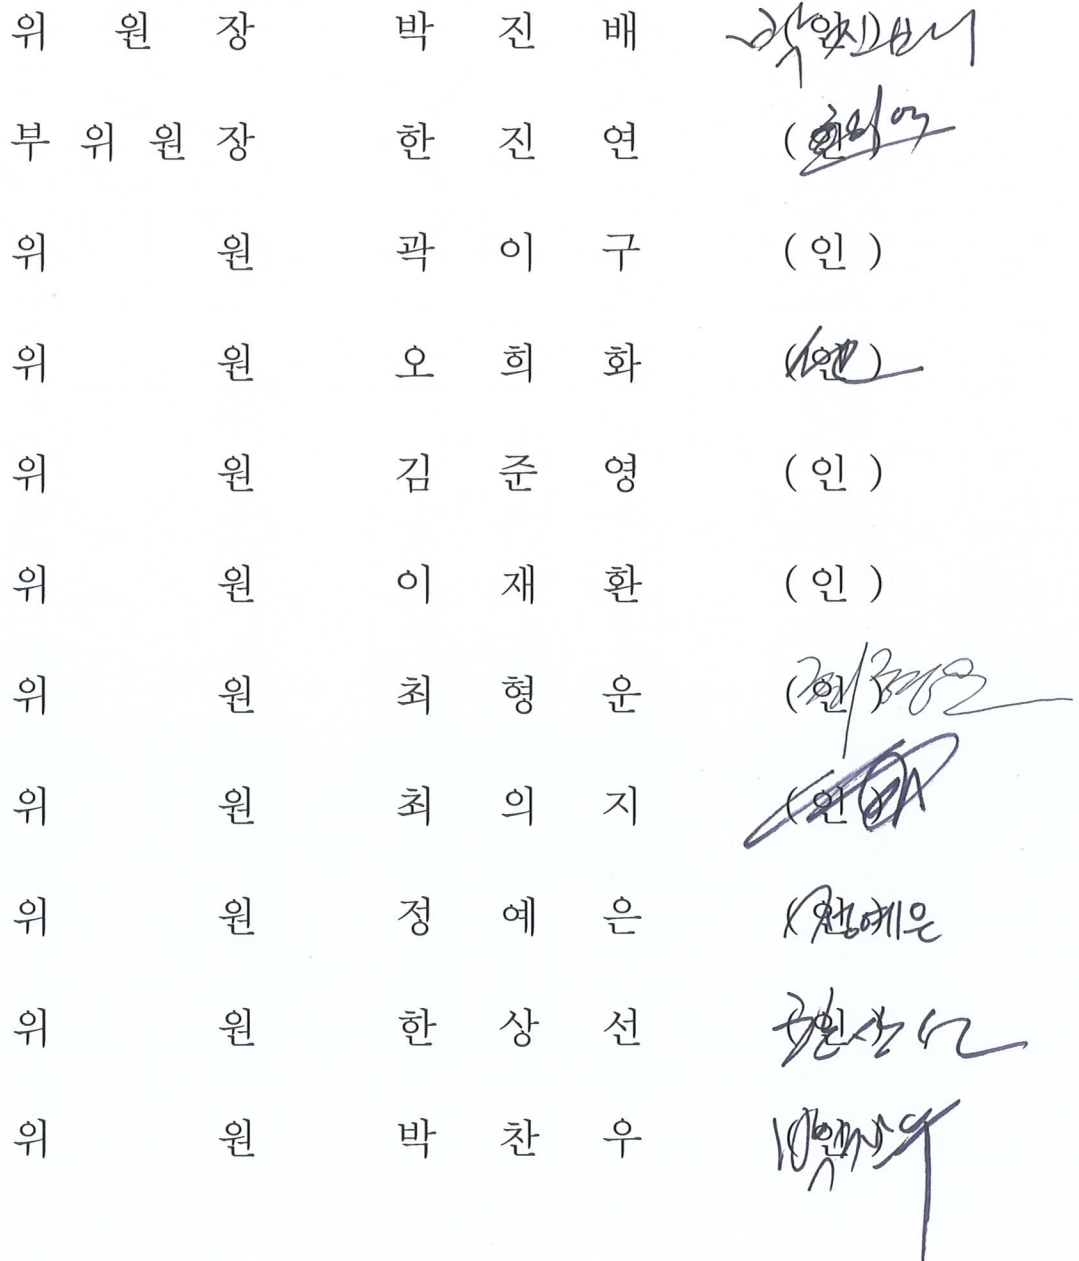 위 원 장 박 진 배 (인)
부 위 원 장 한 진 연 (인)
위 원 곽 이 구 (인)
위 원 오 희 화 (인)
위 원 김 준 영 (인)
위 원 이 재 환 (인)
위 원 최 형 운 (인)
위 원 최 의 지 (인)
위 원 정 예 은 (인) 정예은
위 원 한 상 선 (인)
위 원 박 찬 우 (인)